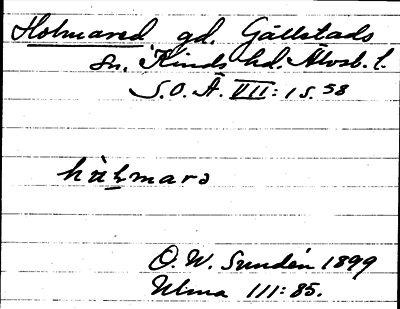 Holmared gd. Gällstads
sn. Kinds hd. Älvsb. l.
S.O.Ä. VII: 1 s. 58
hù̀lmarə
O. W. Sundén 1899
Ulma 111:85.